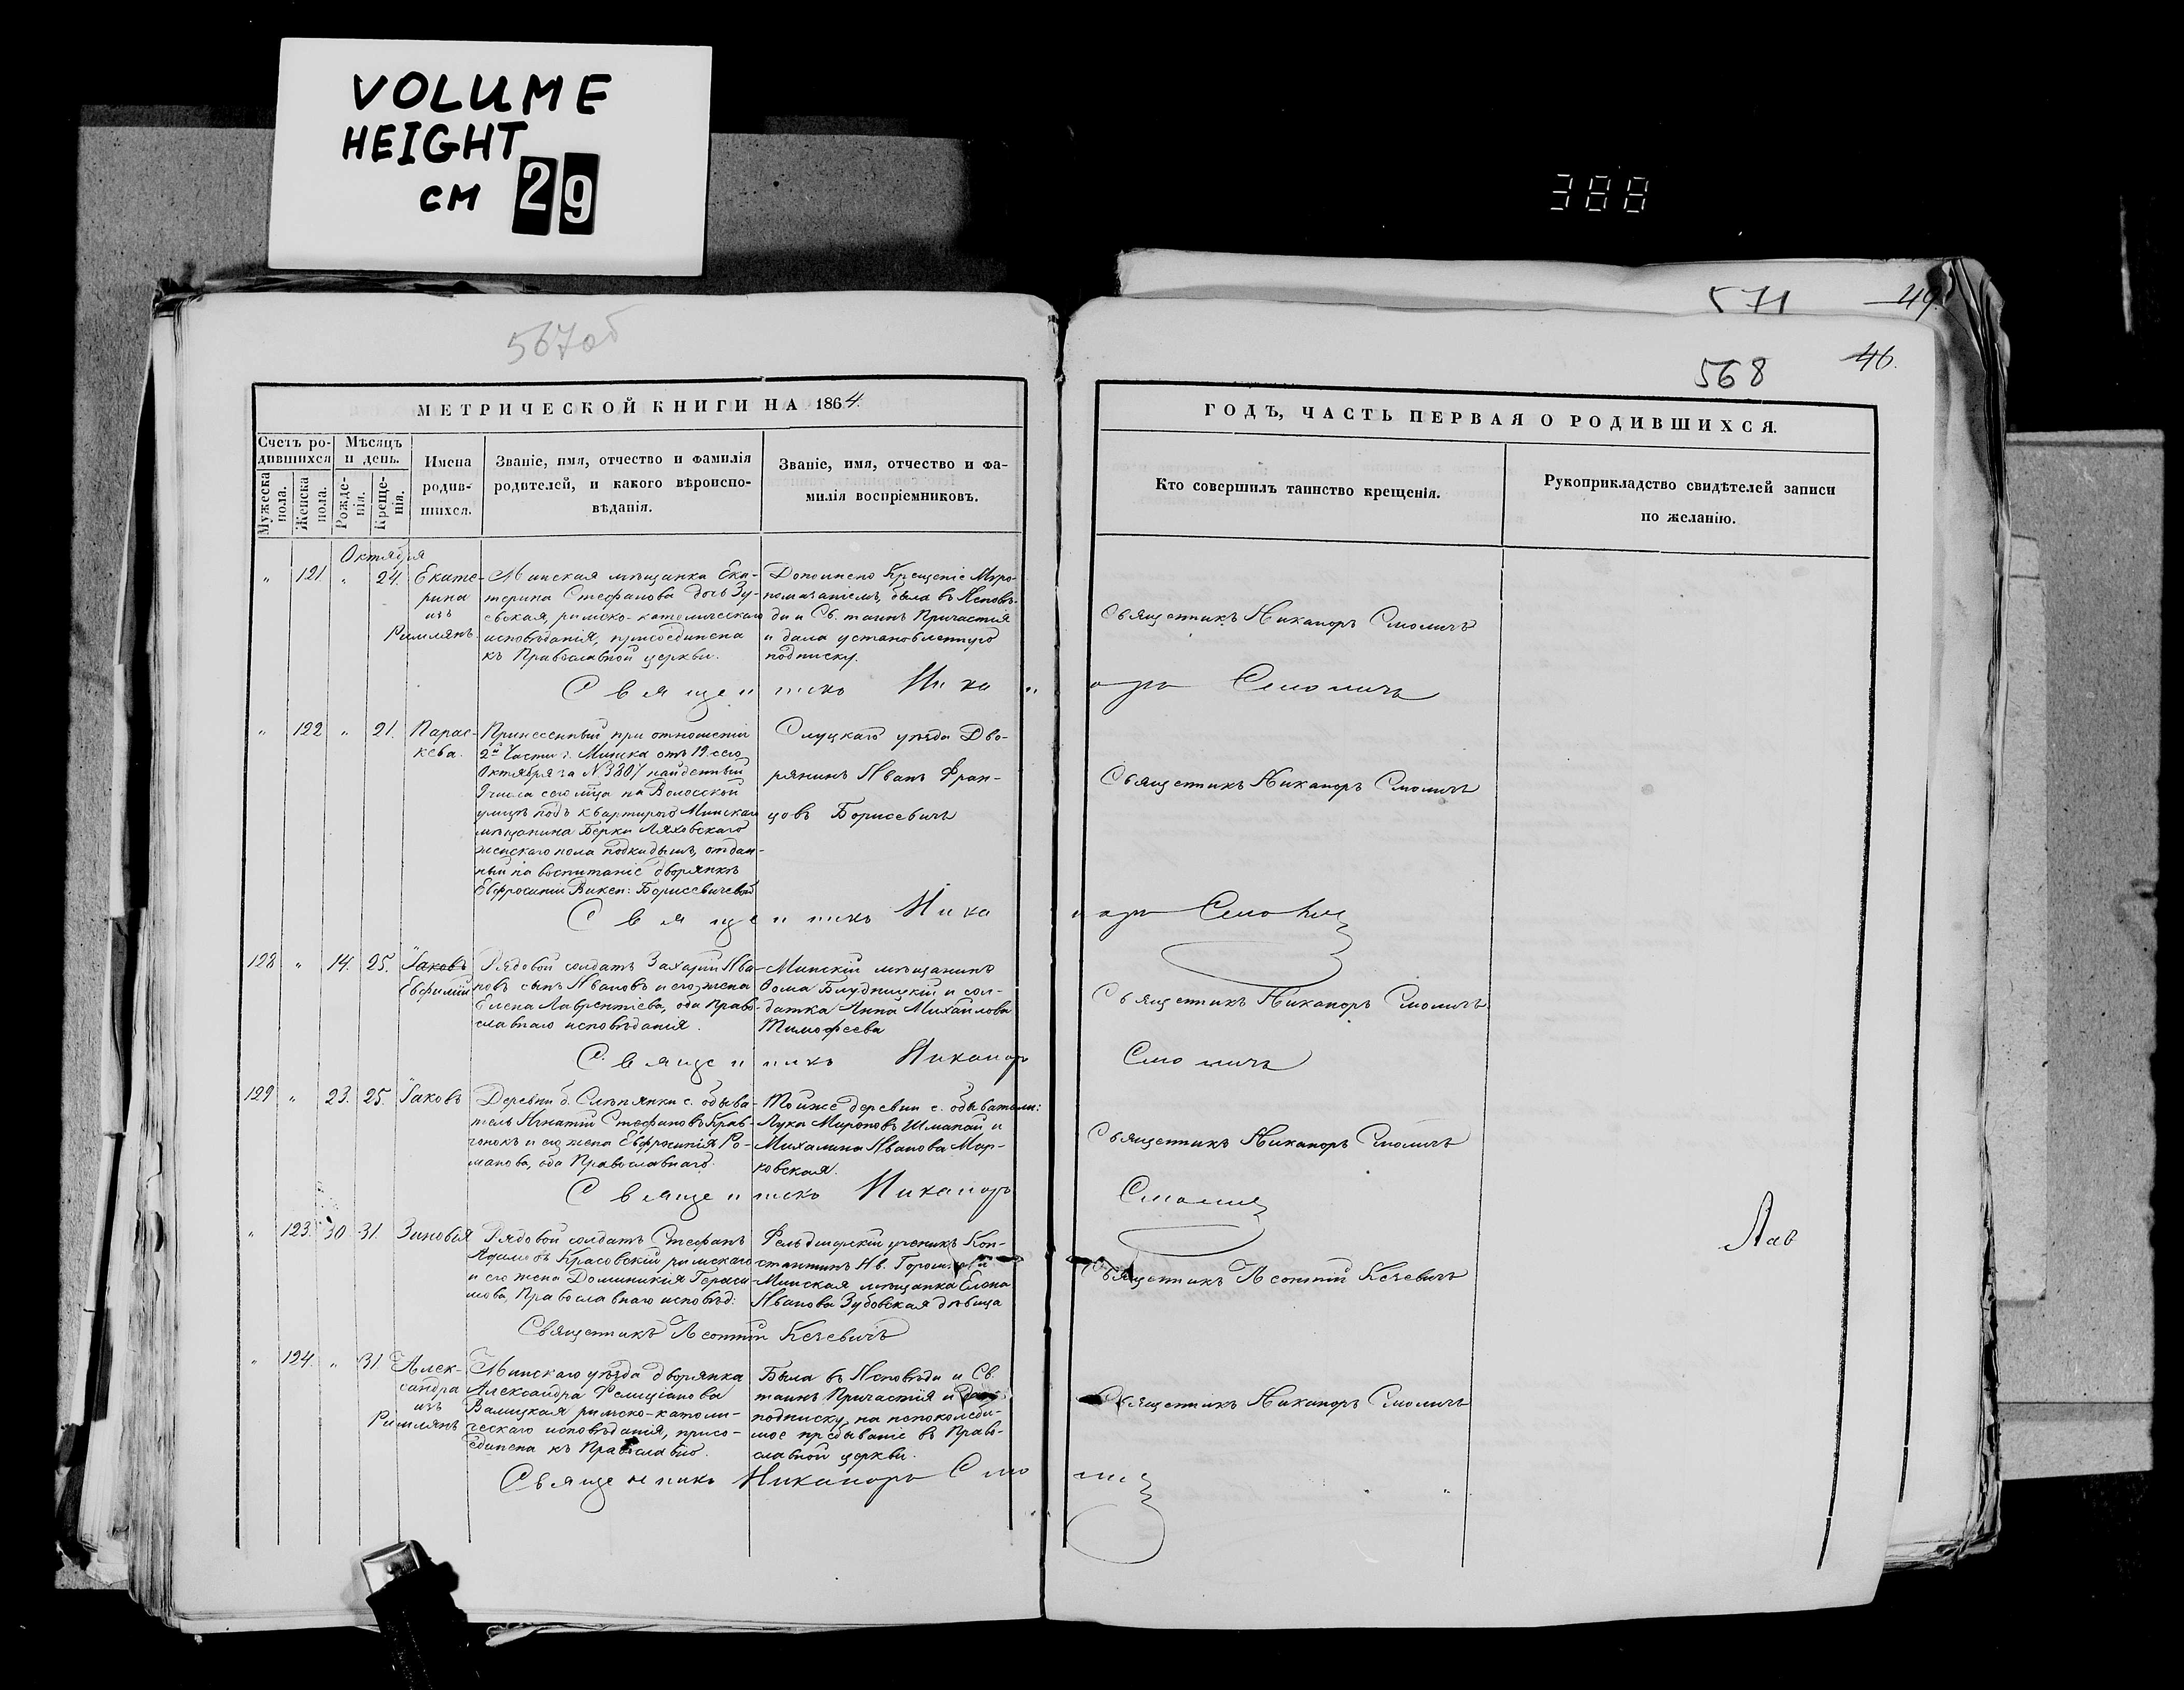 VOLUME
HEIGHT
CM 29
388
571
49.
567об
568
46.
МЕТРИЧЕСКОЙ КНИГИ НА 1864.
Счетъ родившихся
Мѣсяцъ и день.
Мужеска пола.
Женска пола.
Рожденія.
Крещенія.
Имена родившихся.
Званіе, имя, отчество и фамилія
родителей, и какого вѣроиспо-
вѣданія.
Званіе, имя, отчество и фа-
милія воспріемниковъ.
ГОДЪ, ЧАСТЬ ПЕРВАЯ О РОДИВШИХСЯ.
Кто совершилъ таинство крещенія.
Рукоприкладство свидѣтелей записи
по желанію.
Октября
" 121. " 24.
Екате-
рина
изъ
Римлянъ.
Минская мѣщанка Ека-
терина Стефанова дочь Зу-
евская, римско-католическаго
исповѣданія, присоединена
къ Православной церкви.
Дополнено Крещеніе Мѵро-
помазаніемъ, была въ Исповѣ-
ди и Св. таинъ Причастія
и дала установленную
подписку.
Священникъ Никаноръ Смоличъ
Священникъ Никаноръ Смоличъ
" 122 " 21.
Парас-
кева.
Принесенный при отношеніи
2й Части г. Минска отъ 19 сего
Октября за N 3807 найденный
9 числа сего мца на Волосской
улицѣ подъ квартирою Минскаго
мѣщанина Берки Ляховскаго
женскаго пола подкидышъ, отдан-
ный на воспитаніе дворянкѣ
Евфросиніи Викен: Борисевичевой
Слуцкаго уѣзда Дво-
рянинъ Иванъ Фран-
цовъ Борисевичъ
Священникъ Никаноръ Смоличъ
Священникъ Никаноръ Смоличъ
128 " 14. 25.
Іаковъ
Евфимій
Рядовой солдатъ Захарій Ива-
новъ сынъ Ивановъ и его жена
Елена Лаврентіева, оба Право-
славнаго исповѣданія.
Минскій мѣщанинъ
Фома Блудницкій и сол-
датка Анна Михайлова
Тимофеева
Священникъ Никаноръ Смоличъ
Священникъ Никаноръ Смоличъ
129 " 23. 25.
Іаковъ
Деревни б. Слѣпянки с. обыва-
тель Игнатій Стефановъ Крав-
чонокъ и его жена Евфросинія Ро-
манова, оба Православнаго.
Тойже деревни с. обыватели:
Лука Мироновъ Шманай и
Михалина Иванова Мар-
ковская.
Священникъ Никаноръ Смоличъ
Священникъ Никаноръ Смоличъ
" 123. 30 31.
Зиновія
Рядовой солдатъ Стефанъ
Адамовъ Красовскій римскаго
и его жена Доминикія Гераси-
мова, Православнаго исповѣд:
Фельдшерскій ученикъ Кон-
стантинъ Ив.
Минская мѣщанка Елена
Иванова Зубовская дѣвица
Священникъ Леонтій Кечевичъ
Лав
Священникъ Леонтій Кечевичъ
" 124. " 31.
Алек-
сандра
изъ
Римлянъ
Минскаго уѣзда дворянка
Александра Фелиціанова
Валицкая римско-католи-
ческаго исповѣданія, присо-
единена къ Православію.
Была въ Исповѣди и Св.
таинъ Причастія и дала
подписку на непоколеби-
мое пребываніе въ Право-
славной церкви.
Священникъ Никаноръ Смоличъ
Священникъ Никаноръ Смоличъ